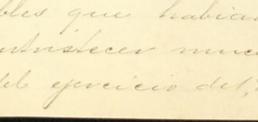 bles que habian
entristecer nunca
del ejercicio del